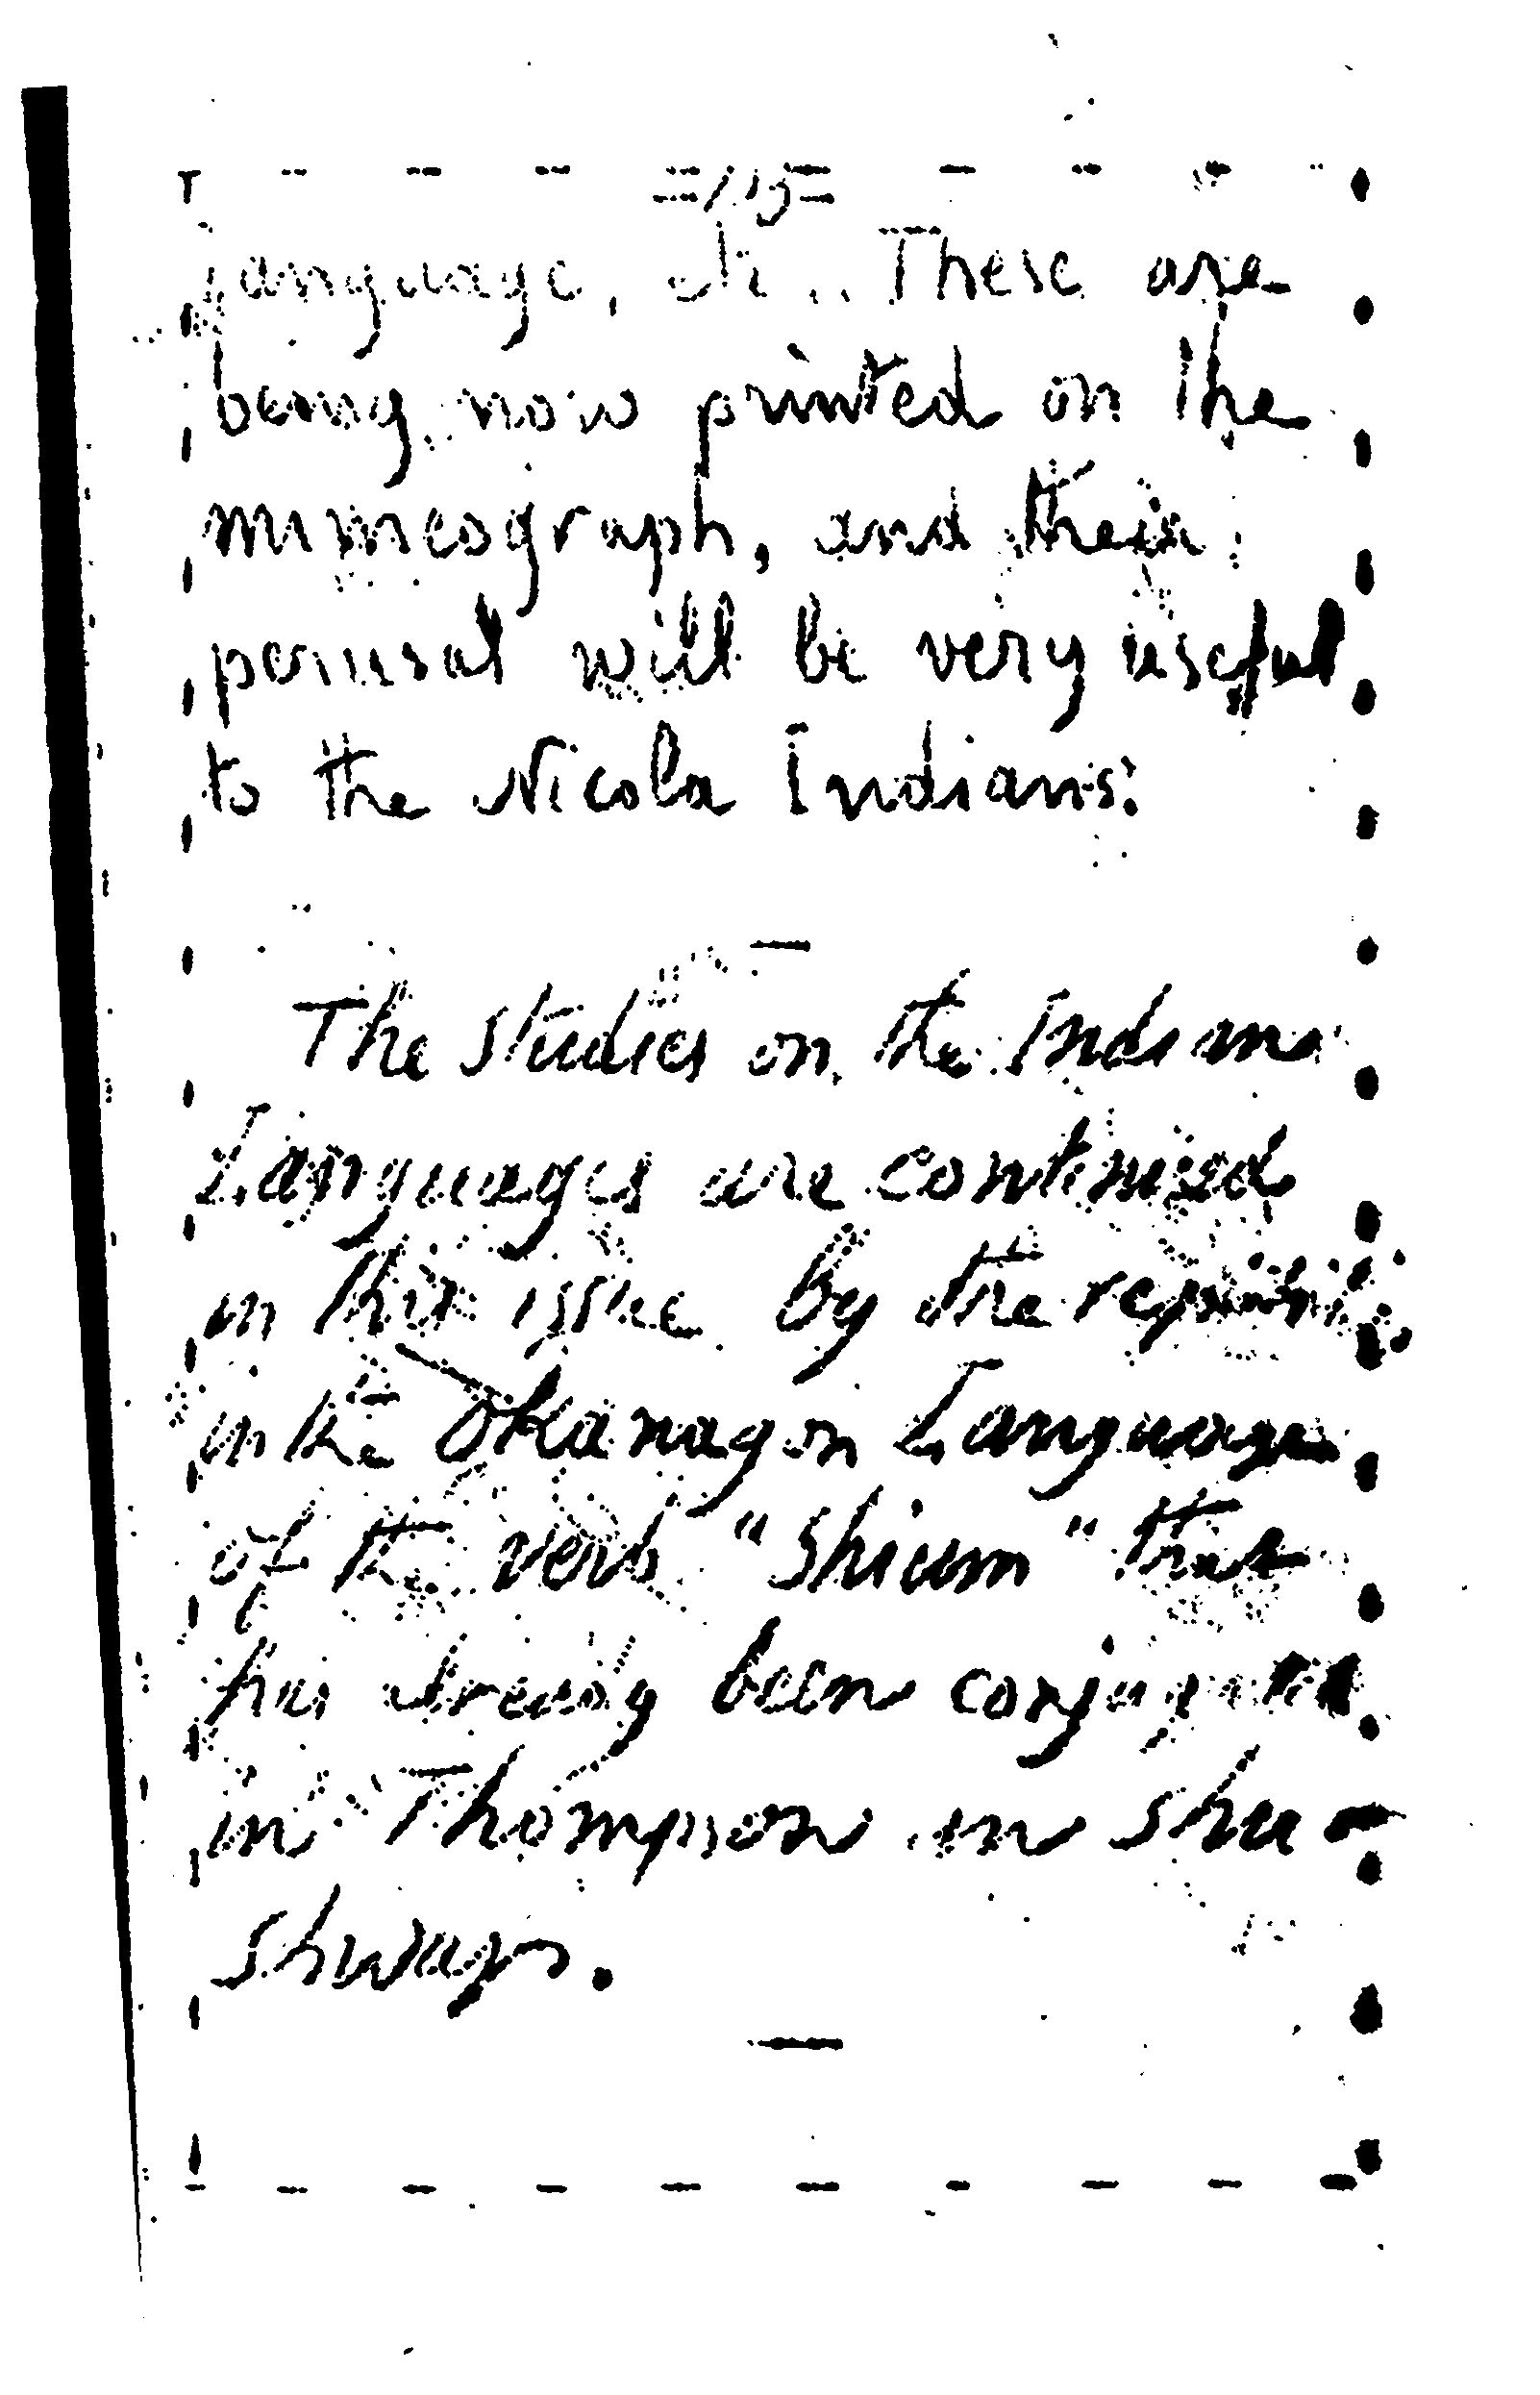 language, etc.. These are
being now printed on the
mimeograph, and their
perusal will be very useful
to the Nicola Indians.
The studies on the Indian
Languages are continued
in this issue by the
in the Okanagon Language
of the verb "Shium" that
has already been conjugated
in Thompson in Shu-
shwap.